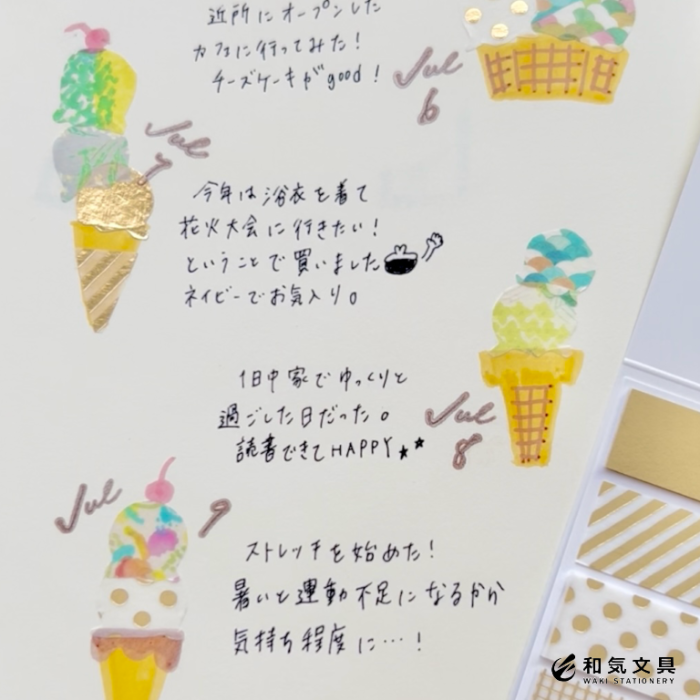 近所にオープンした
カフェに行ってみた!
チーズケーキがgood!
Jul
6
Jul
7
今年は浴衣を着て
花火大会に行きたい!
ということで買いました
ネイビーでお気入り。
1日中家でゆっくりと
過ごした日だった。
読書できてHAPPY★★
Jul
8
Jul 9
ストレッチを始めた!
暑いと運動不足になるから
気持ち程度に…!
和気文具
WAKI STATIONERY